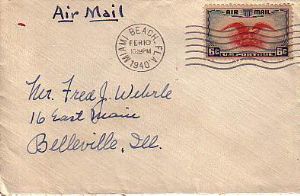 Air Mail
MIAMI BEACH, FLA.
FEB 10
PM
1940
AIR MAIL
6¢ 6¢
Mr. Fred J. Wehrle
16 East Main
Belleville, Ill.